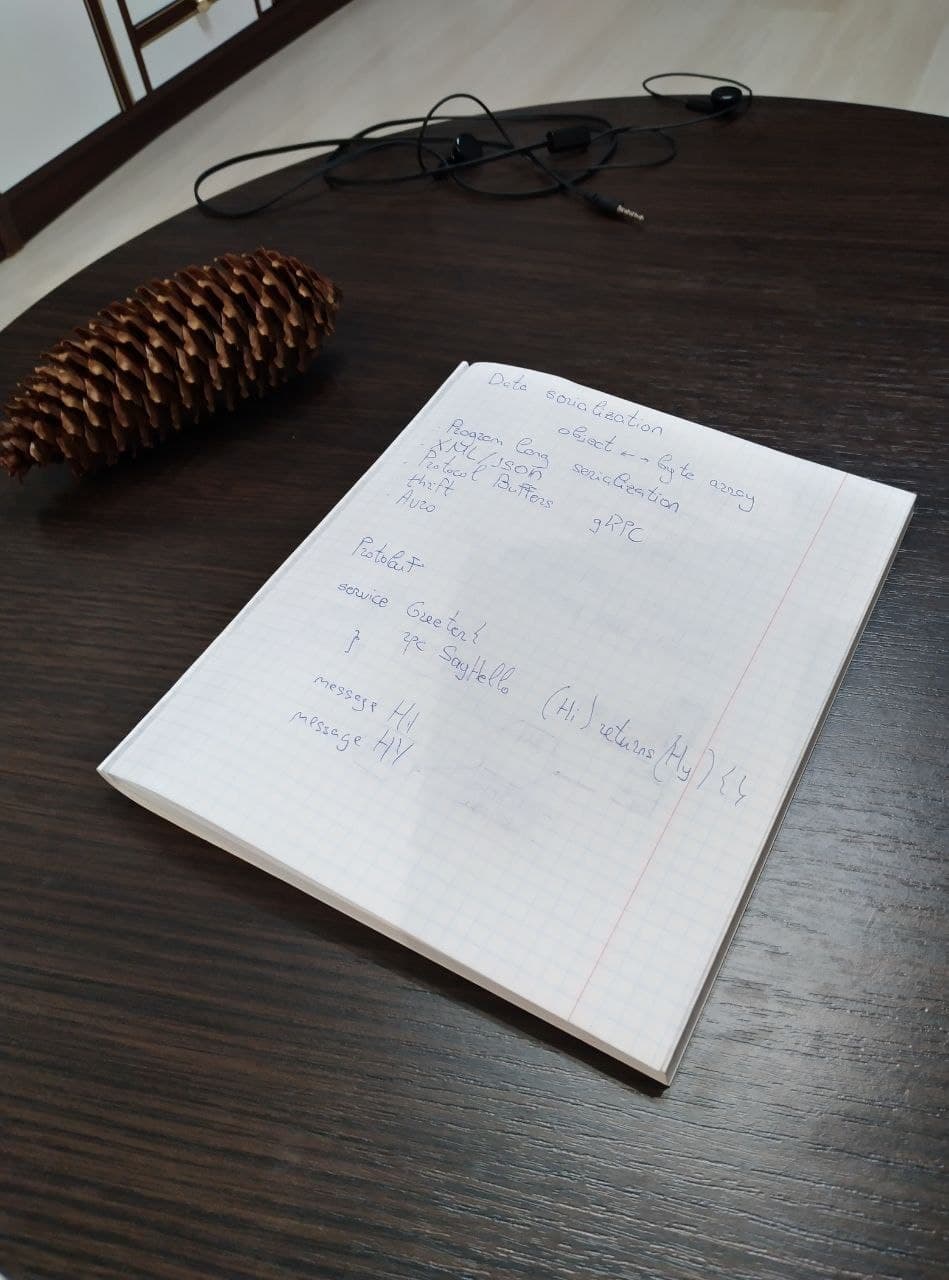 Data serialization
object ← → byte array
· Program lang serialization
· XML/JSON
· Protocol Buffers gRPC
· thrift
· Avro
Protobuf
service Greeter {
rpc SayHello (Hi) returns (Hy) {}
}
message Hi
message HY